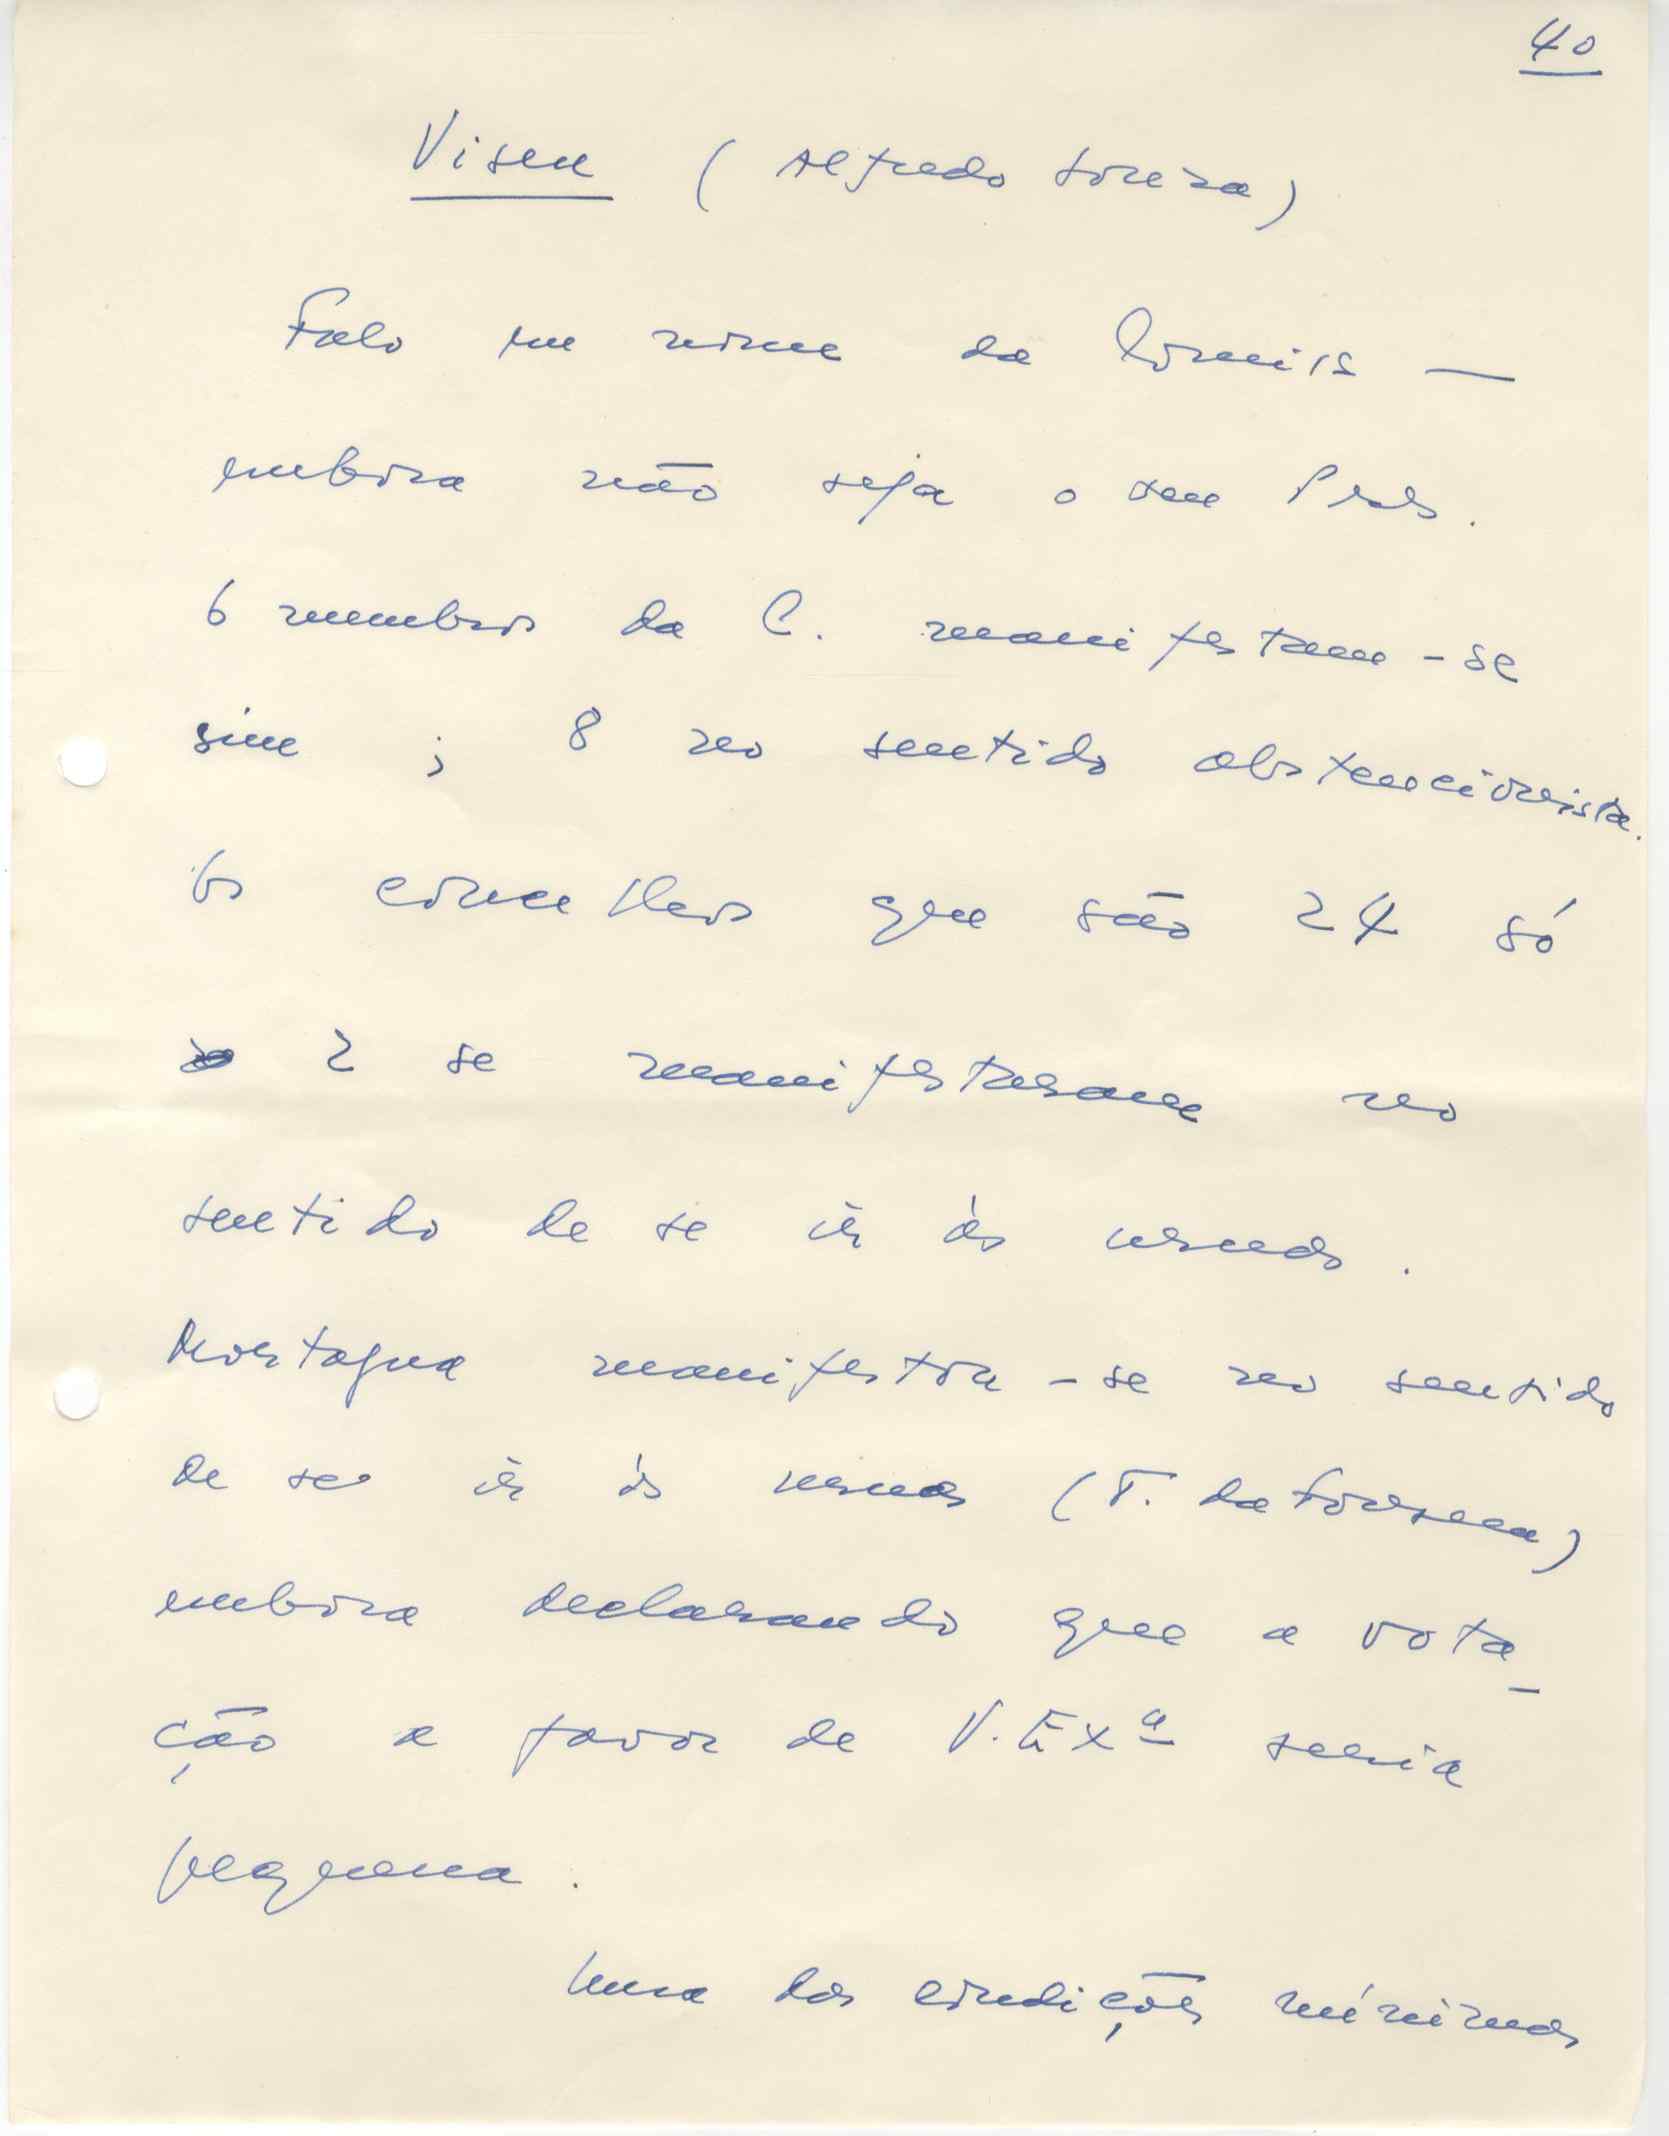 40
Viseu ( Alfredo Souza)
Falo em nome da Comis —
embora não seja o seu Pres.
6 membros da C. manifestam-se
sim ; 8 no sentido abstencionista.
Os concelhos que são 24 só
2 se manifestaram no
sentido de se ir às urnas.
Mortagua manifestou-se no sentido
de se ir às urnas (T. da Fonseca)
embora declarando que a vota-
ção a favor de V. Exª seria
pequena.
Uma das condições mínimas